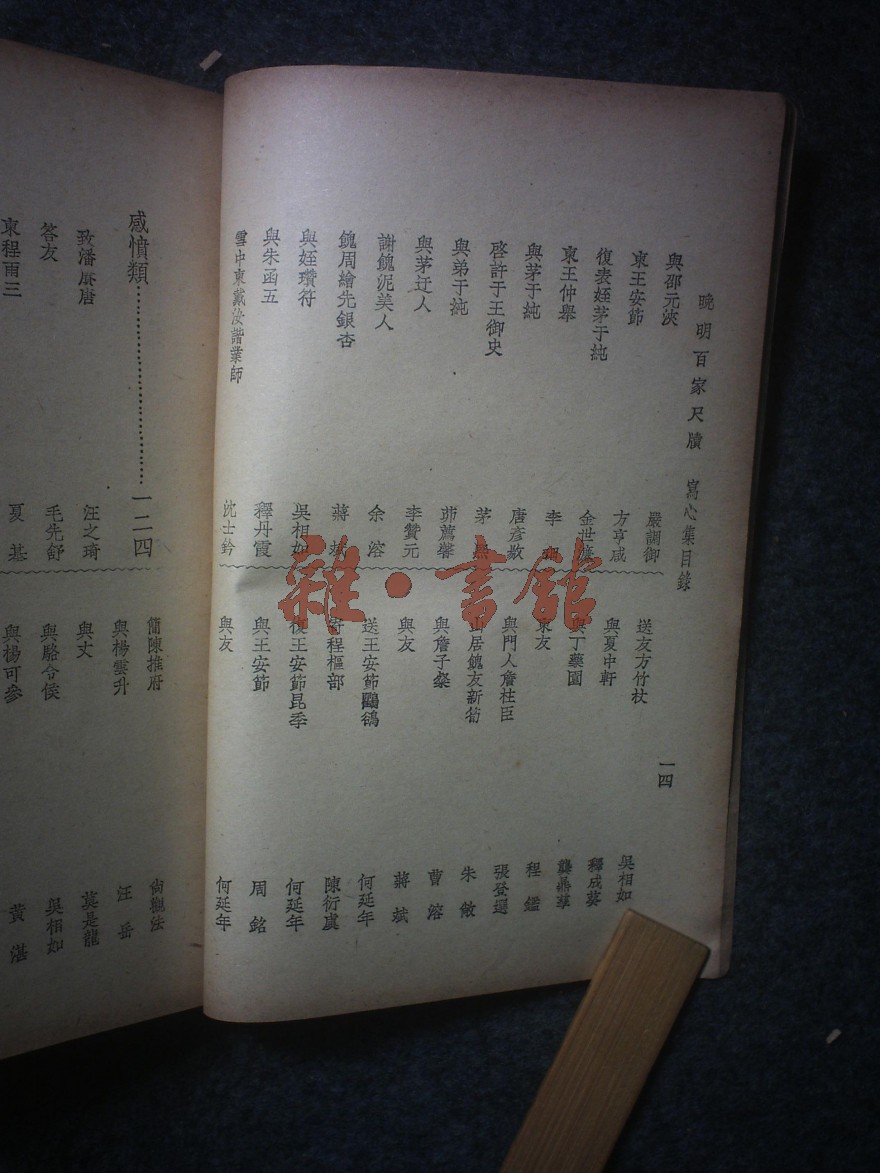 晚明百家尺牘 寫心集目錄
一四
與邵元浹 嚴調御
柬王安節 方亨咸
復表姪茅于純 金世
柬王仲舉 李
與茅于純 唐彥敭
啓許于王御史 茅
與弟于純 茆薦馨
與茅迂人 李贊元
謝餽泥美人 余溶
餽周繪先銀杏 蔣斌
與姪瓚符 吳相如
與朱函五 釋丹霞
雪中柬戴汝諧業師 沈士鈐
送友方竹杖 吳相如
與夏中軒 釋成葵
與丁藥園 龔鼎孳
柬友 程鑑
與門人詹柱臣 張登選
山居餽友新筍 朱敞
與詹子粲 曹溶
與友 蔣斌
送王安節鸜鵒 何延年
寄程樞部 陳衍虞
復王安節昆季 何延年
與王安節 周銘
與友 何延年
感憤類⋯⋯⋯⋯⋯⋯一二四
致潘康唐 汪之琦
答友 毛先舒
柬程雨三 夏基
簡陳推府 尙觀法
與楊雲升 汪岳
與丈 莫是龍
與駱令侯 吳相如
與楊可參 黃湛
雜·書館